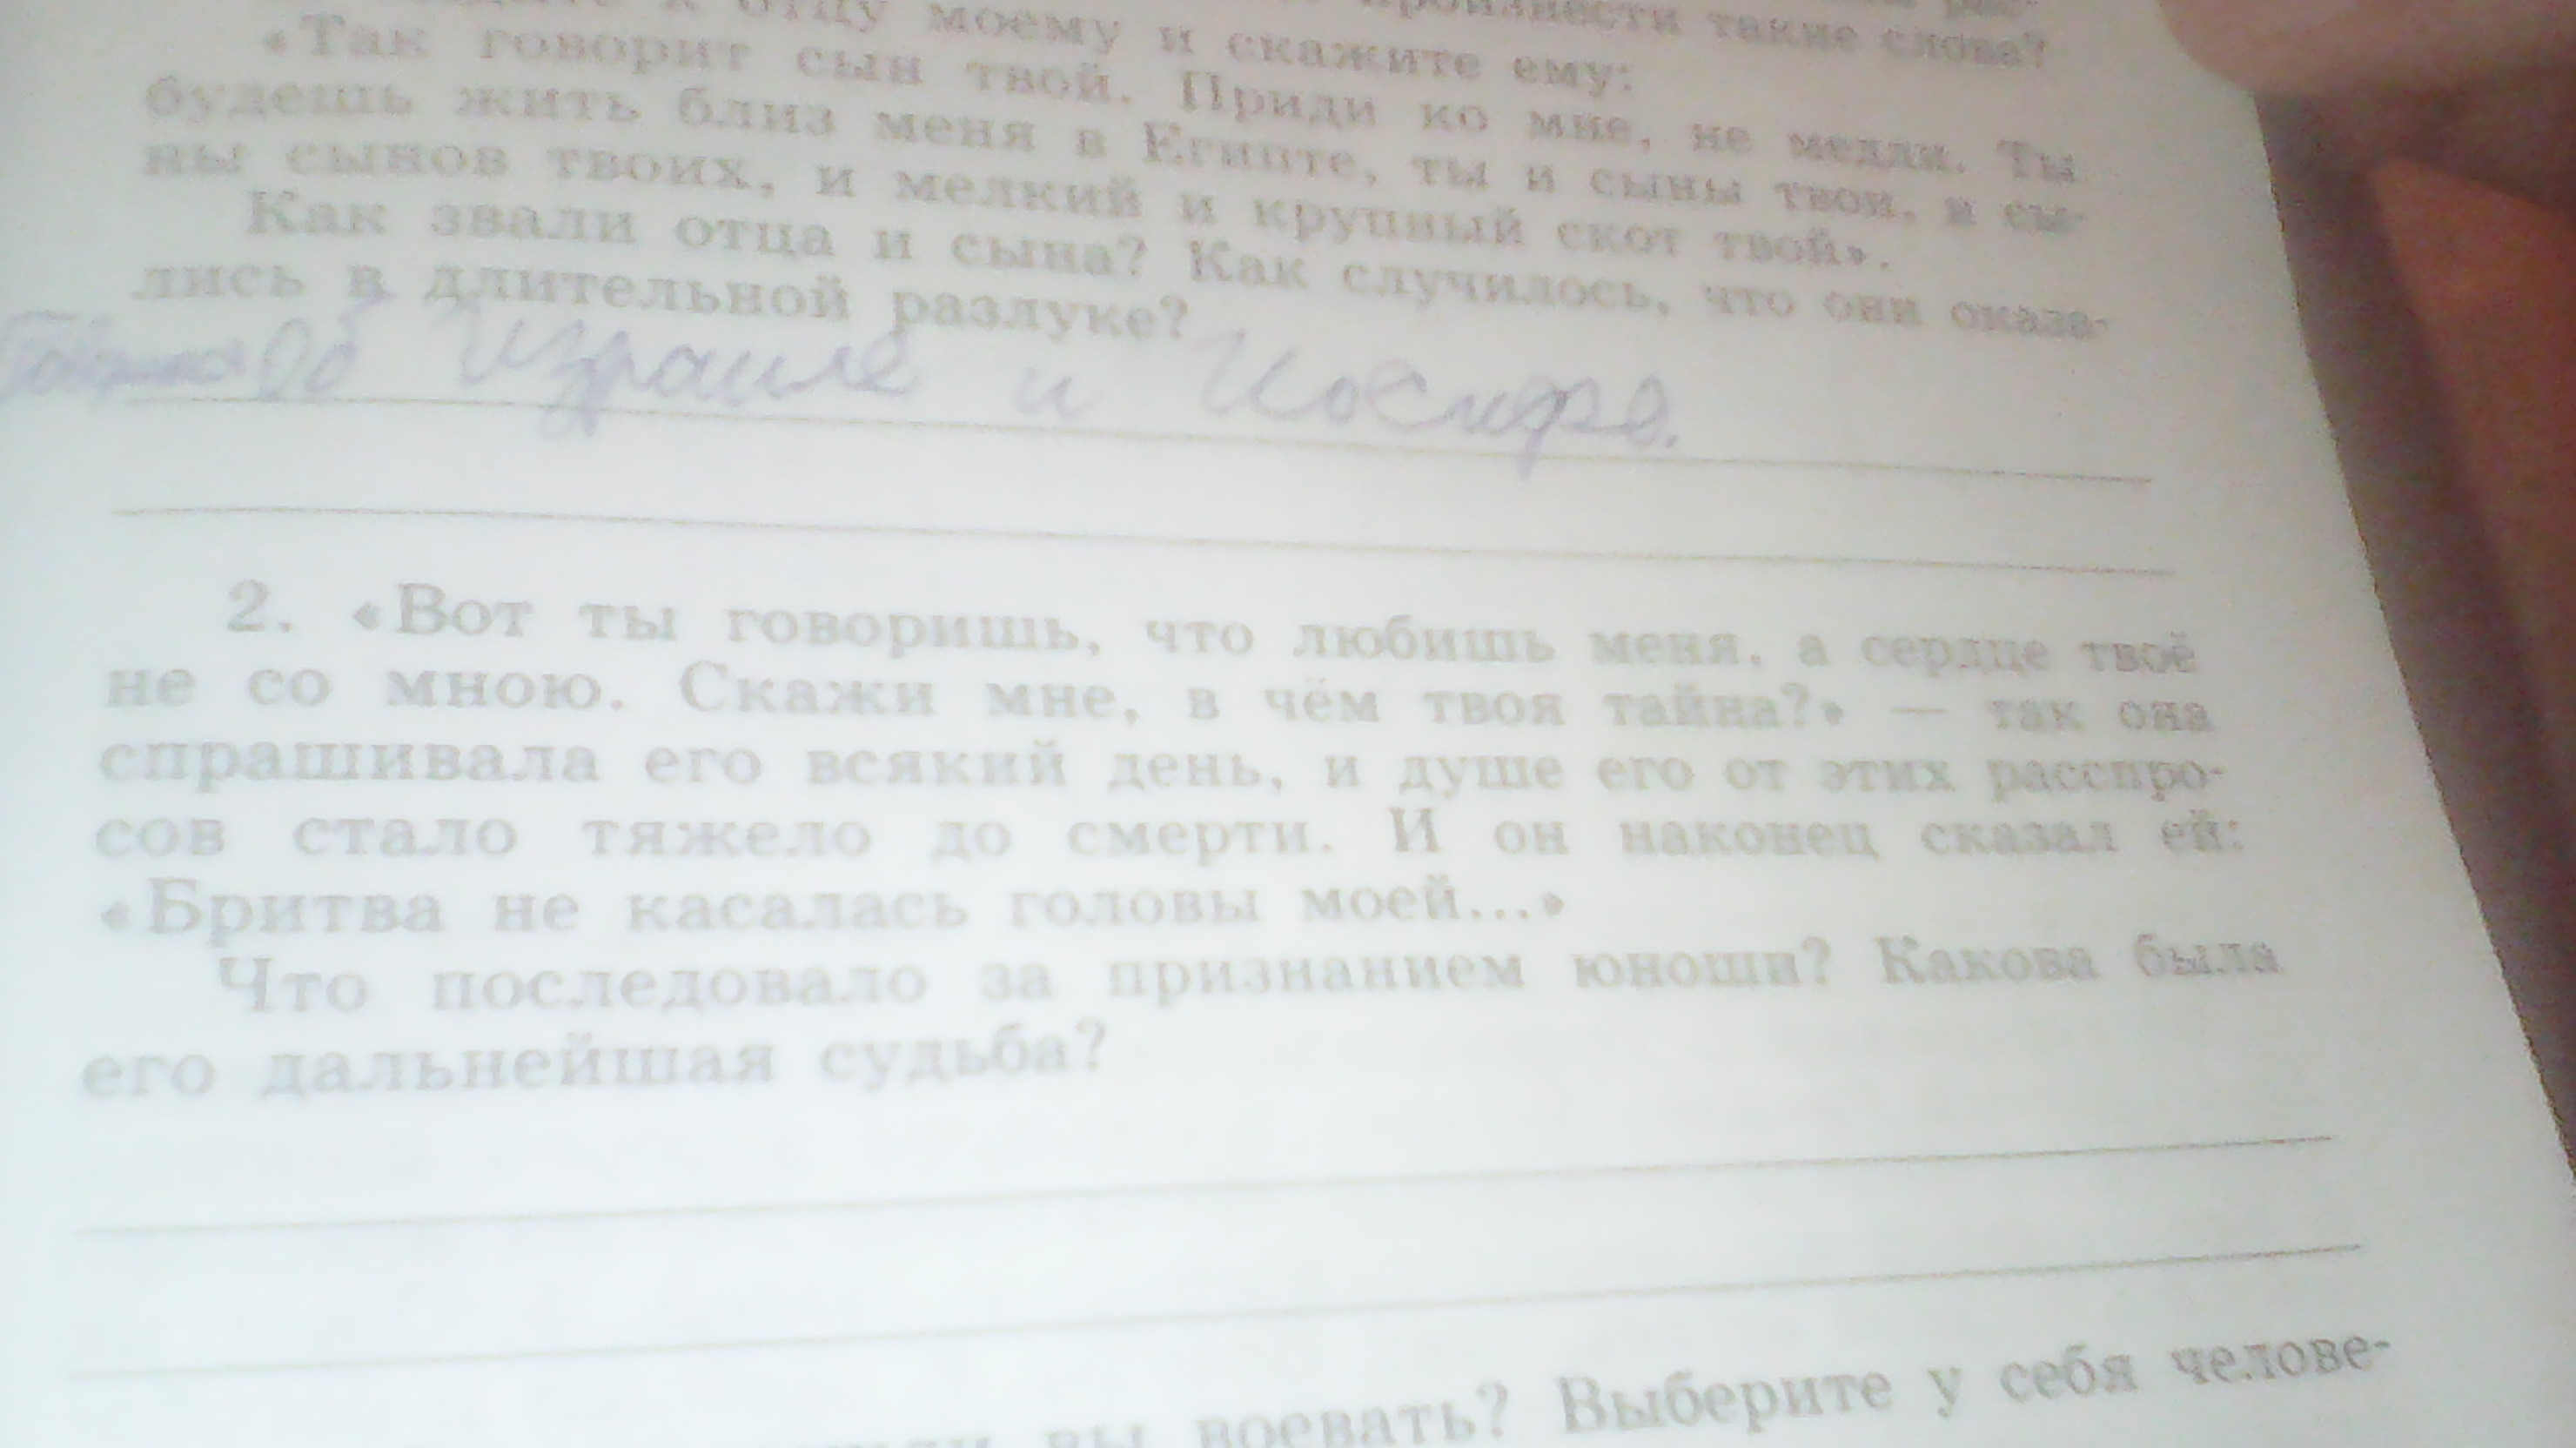 к отцу моему и скажите ему: произнести такие слова?
«Так говорит сын твой. Приди ко мне, не медли. Ты
будешь жить близ меня в Египте, ты и сыны твои, и сы-
ны сынов твоих, и мелкий и крупный скот твой».
Как звали отца и сына? Как случилось, что они оказа-
лись в длительной разлуке?
об Израиле и Иосифе.
2. «Вот ты говоришь, что любишь меня, а сердце твоё
не со мною. Скажи мне, в чём твоя тайна?» — так она
спрашивала его всякий день, и душе его от этих расспро-
сов стало тяжело до смерти. И он наконец сказал ей:
«Бритва не касалась головы моей...»
Что последовало за признанием юноши? Какова была
его дальнейшая судьба?
вы воевать? Выберите у себя челове-